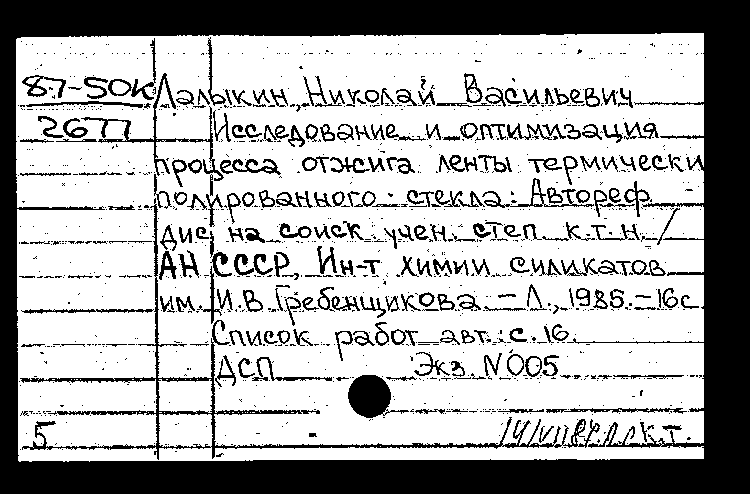 87-50К Лалыкин, Николай Васильевич
2677 Исследование и оптимизация
процесса отжига ленты термически
полированного стекла: Автореф.
дис. на соиск. учен. степ. к.т.н. /
АН СССР, Ин-т химии силикатов
им. И.В. Гребенщикова. - Л., 1985. - 16с
Список работ авт.: с. 16.
ДСП Экз. N005
5 к.т.